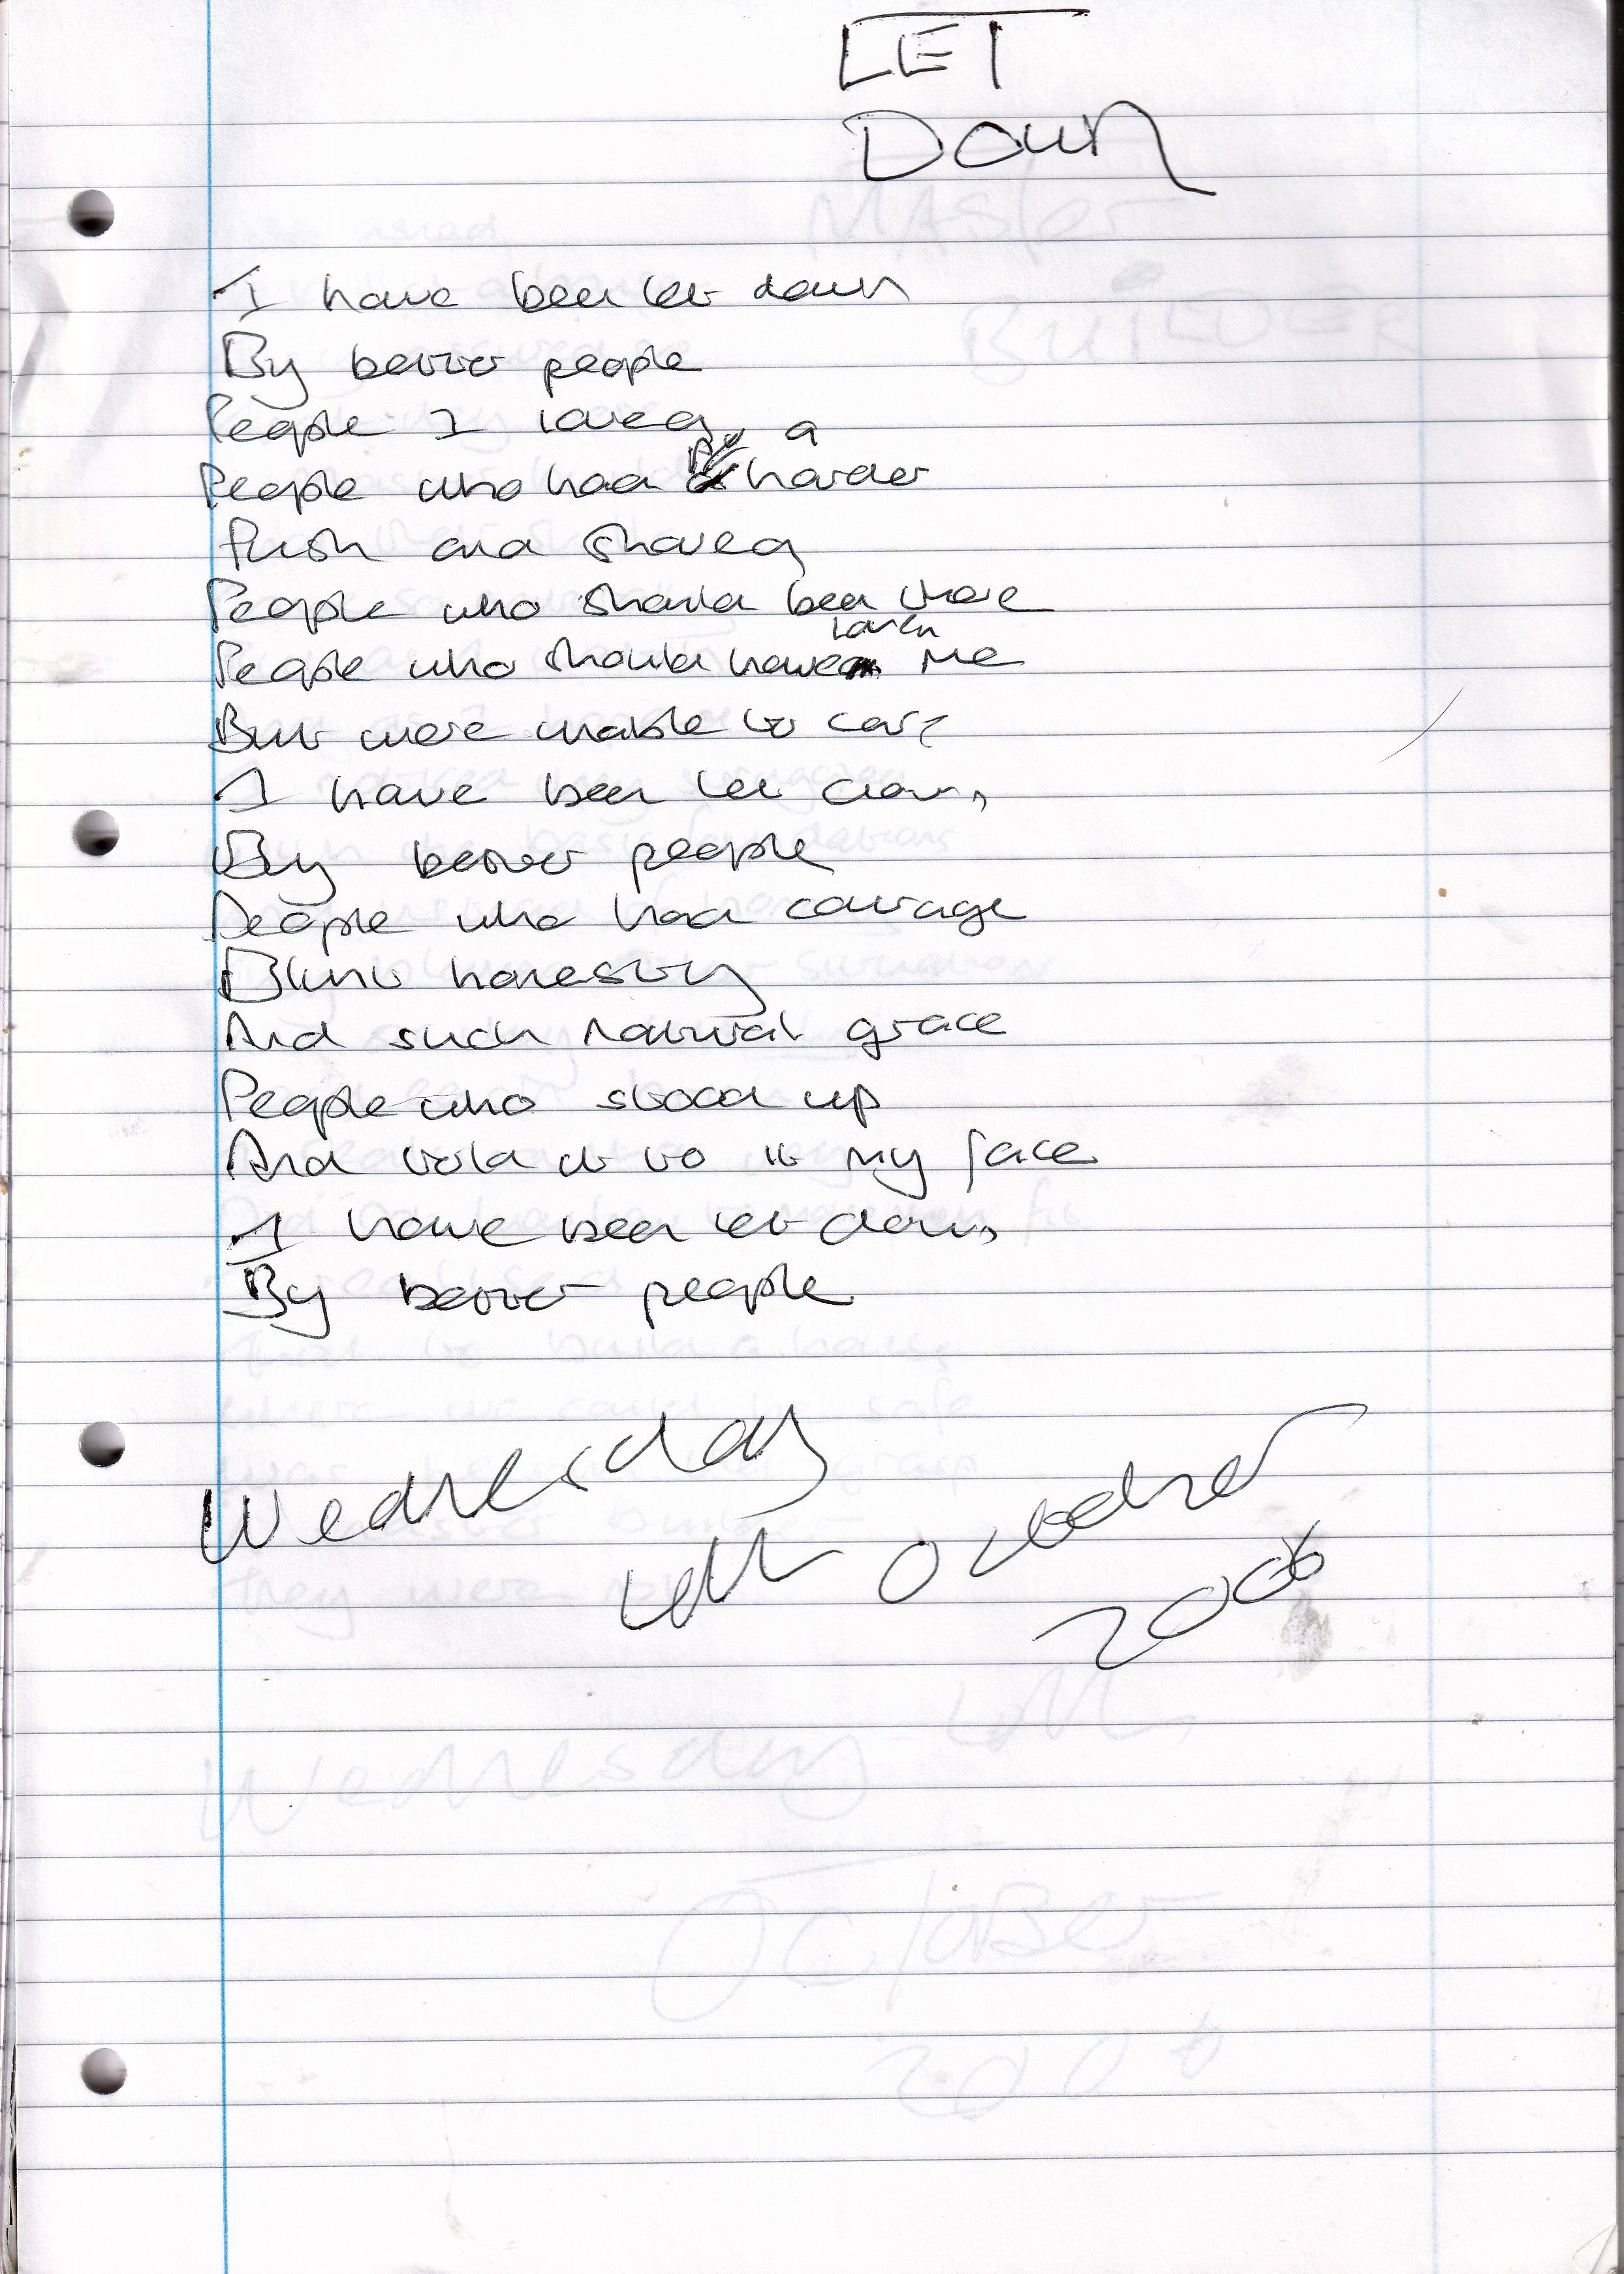 LET
Down
I have been let down
By better people
People I loved
People who had a harder
Push and shoved
People who should been there
People who should have loved me
But were unable to care
I have been let down
By better people
People who had courage
Blunt honesty
And such natural grace
People who stood up
And told it to it my face
I have been let down
By better people
Wednesday
4th October
2006